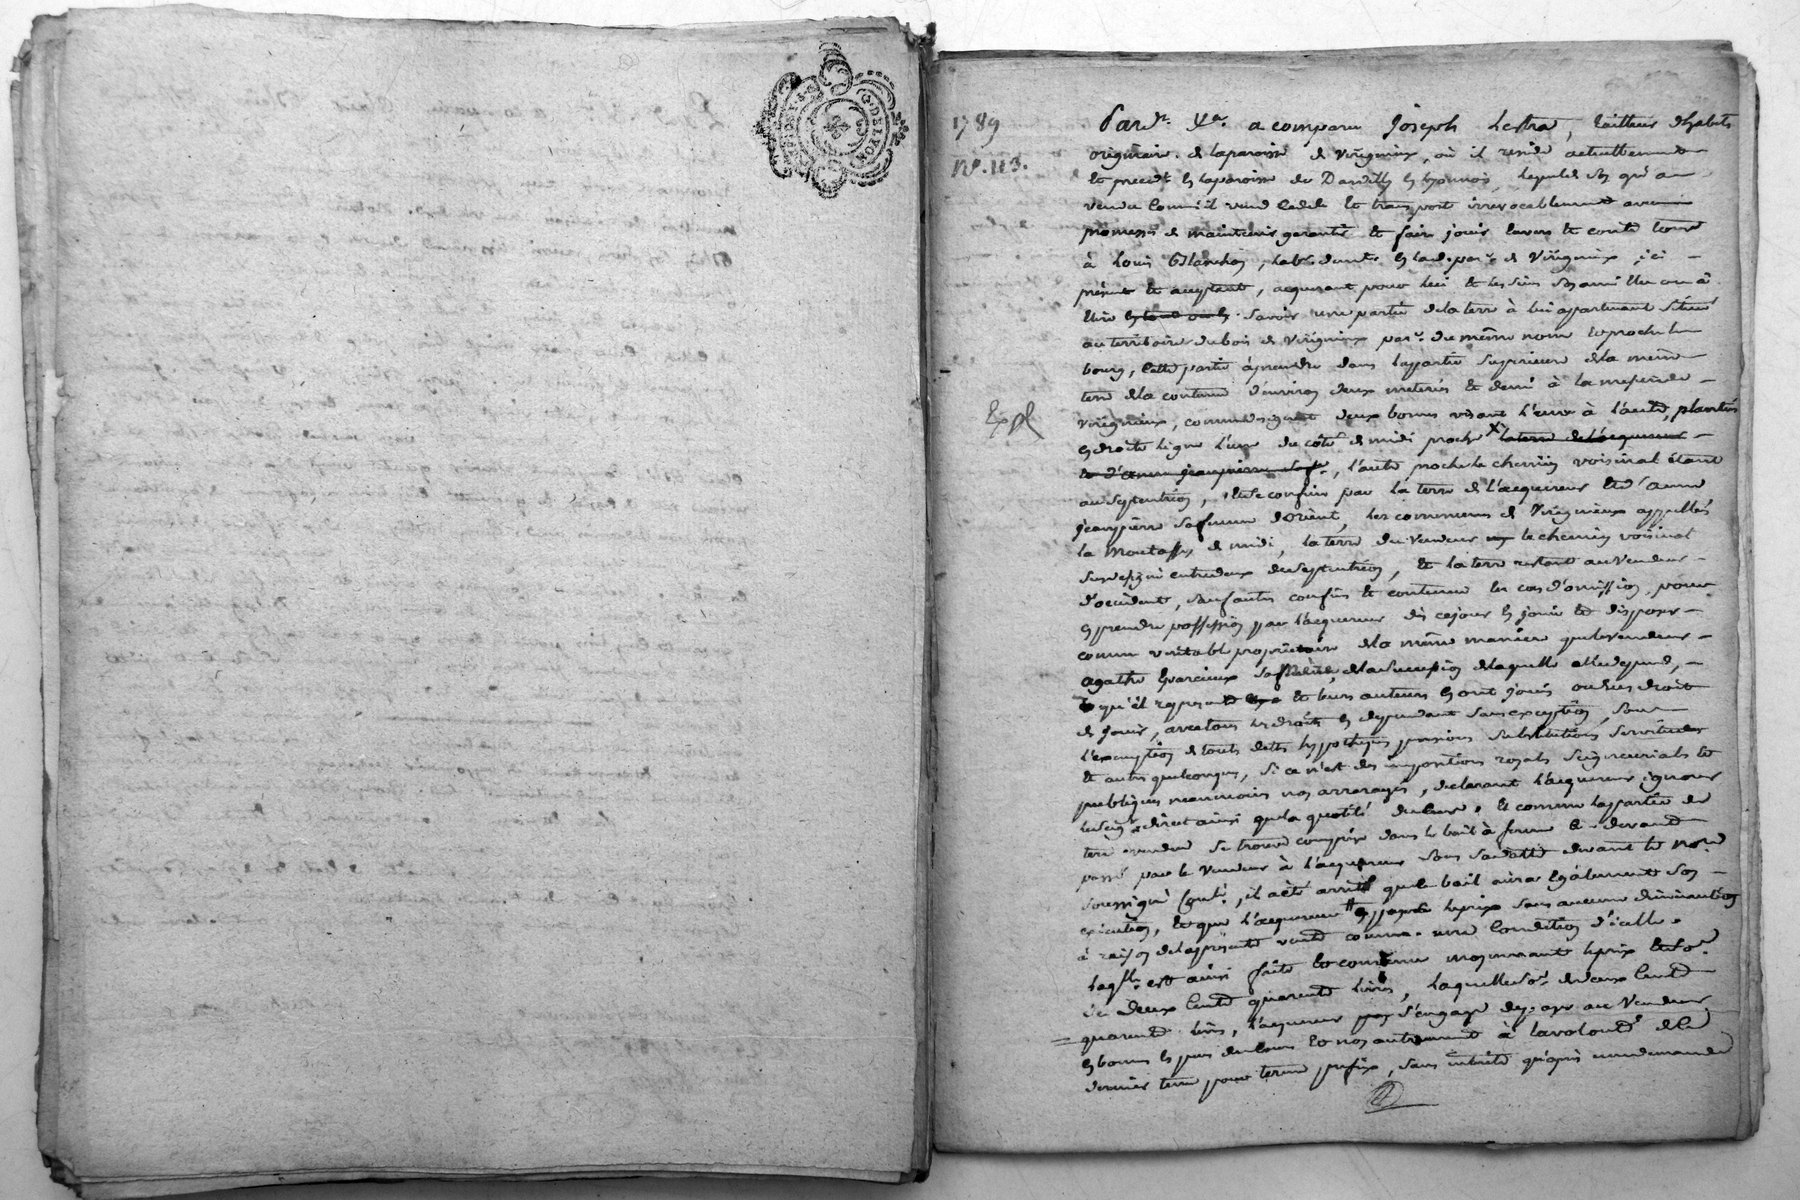 G. DE LYON
1789
N°. 113.
Expl
Pard.t a comparu Joseph Lestra, tailleur d'habits
originaire de la paroisse de Virigneux, où il reside actuellement
et preced.t en la paroisse de Dardilly en Lyonnois, lequel de son gré a
vendu comme il vend cede et transporte irrevocablement avec
promesse de maintenir garantir et faire jouir envers et contre tous
à Louis Blanchon, lab.r demt. en lad. par.e de Virigneux ici
présent et acceptant, acquerant pour lui et les siens son ami elu ou à
elire savoir une partie de la terre à lui appartenant située
au territoire du bois de Virigneux par.e du même nom et proche le
bourg, cette partie à prendre dans la partie superieure de la même
terre de la contenue d'environ deux meterés et demi à la mesure de
Virigneux, comme designent deux bornes visant l'une à l'autre, plantées
en droite ligne l'une du côté de midi proche la terre de l'acquereur
et d'anne jeanpierre sa f.e, l'autre proche le chemin voisinal étant
au septentrion, et se confine par la terre de l'acquereur et d'anne
jeanpierre sa femme d'orient, les communes de Virigneux appellées
la de midi, la terre du vendeur le chemin voisinal
susdesigné entredeux du septentrion, et la terre restante au vendeur
d'occident, sauf autres confins et contenue en cas d'omission, pour
en prendre possession par l'acquereur dès ce jour en jouir et disposer
comme veritable proprietaire de la même manière que le vendeur
agathe sa mère, de la succession de laquelle elle depend,
qu'il represente et leurs auteurs en ont joui ou eu droit
de jouir, avec tous les droits en dependant sans exception, sous
l'exemption de toutes dettes hypotheques pensions substitutions servitudes
et autres quelconques, si ce n'est des impositions royales seigneuriales et
publiques neanmoins non arreragés, declarant l'acquereur ignorer
le seig.r direct ainsi que la quotité du cens. Et comme la partie de
terre vendue se trouve comprise dans le bail à ferme ci-devant
passé par le vendeur à l'acquereur sous sa datte devant le no.re
soussigné cont.é, il a été arrêté que le bail aura egalement son
execution, et que l'acquereur en payera le prix sans aucune diminution
à raison de la presente vente comme une condition d'icelle.
laq.lle est ainsi faite et convenue moyennant le prix et so.e
de deux cents quarante livres, laquelle so.e de deux cents
quarante livres, l'acquereur s'engage de payer au vendeur
en bonnes especes du cours et non autrement à la volonté de ce
dernier terme pour terme prefix, sans interêts qu'après une demande